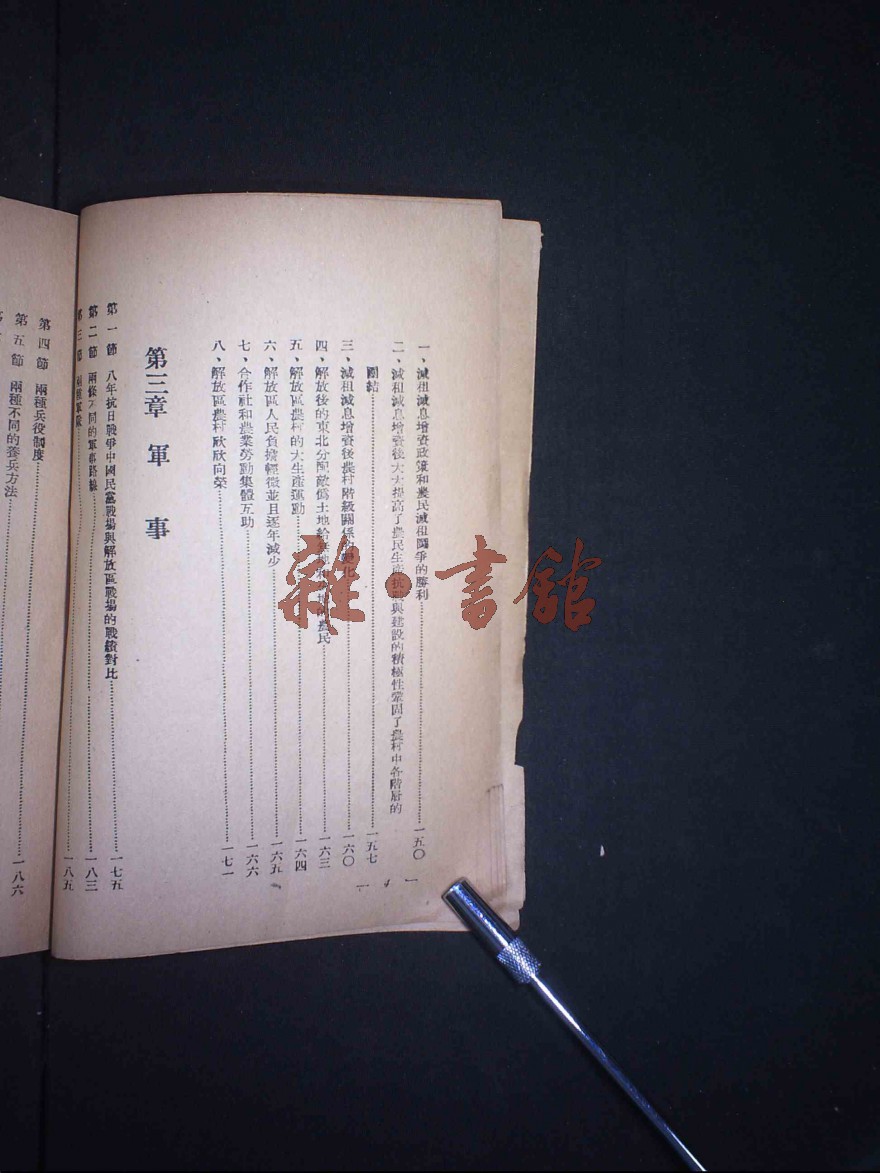 一、減租減息增資政策和農民減租鬭爭的勝利……一五〇
二、減租減息增資後大大提高了農民生產抗戰與建設的積極性鞏固了農村中各階層的
團結……一五七
三、減租減息增資後農村階級關係的變化……一六〇
四、解放後的東北分配敵僞土地給無地和少地的農民……一六三
五、解放區農村的大生產運動……一六四
六、解放區人民負擔輕微並且逐年減少……一六五
七、合作社和農業勞動集體互助……一六六
八、解放區農村欣欣向榮……一七一
第三章 軍 事
第一節 八年抗日戰爭中國民黨戰場與解放區戰場的戰績對比……一七五
第二節 兩條不同的軍事路線……一八三
第三節 兩種軍隊……一八五
第四節 兩種兵役制度……一八六
第五節 兩種不同的養兵方法……
雜·書館